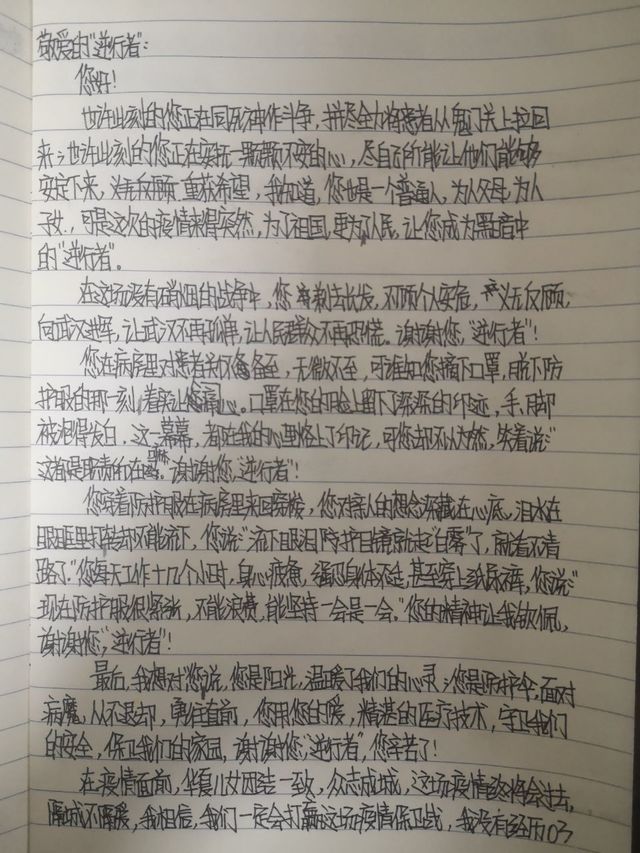 敬爱的"逆行者":
您好!
也许此刻的您正在同死神作斗争,拼尽全力将患者从鬼门关上拉回
来;也许此刻的您正在安抚一颗颗不安的心,尽自己所能让他们能够
安定下来,义无反顾 重获希望,我知道,您也是一个普通人,为人父母,为人
子女,可是这次的疫情来得突然,为了祖国,更为了人民,让您成为黑暗中
的"逆行者"。
在这场没有硝烟的战争中,您剃去长发,不顾个人安危,义无反顾,
向武汉进辉,让武汉不再孤单,让人民群众不再恐慌。谢谢您,"逆行者"!
您在病房里对患者关怀备至,无微不至,可谁知您摘下口罩,脱下防
护服的那一刻,着实让您痛心。口罩在您的脸上留下了深深的印迹,手、脚
被泡得发白,这一幕幕,都在我的心里烙上了印记,可您却不以为然,笑着说:"
这都是职责所在嘛。"谢谢您,"逆行者"!
您穿着防护服在病房里来回穿梭,您对亲人的想念深藏在心底,泪水在
眼眶里打转却不能流下,您说:"流下眼泪防护目镜就起'白雾'了,就看不清
路了."您每天工作十几个小时,身心疲惫,强忍身体不适,甚至穿上纸尿裤,您说:"
现在防护服很紧张,不能浪费,能坚持一会是一会."您的精神让我钦佩,
谢谢您,"逆行者"!
最后,我想对您说,您是阳光,温暖了我们的心灵;您是防护伞,面对
病魔,从不退却,勇往直前,您用您的暖,精湛的医疗技术,守卫我们
的安全,保卫我们的家园,谢谢您,"逆行者",您辛苦了!
在疫情面前,华夏儿女团结一致,众志成城,这场疫情终将会过去,
隔城不隔爱,我相信,我们一定会打赢这场疫情保卫战,我没有经历03